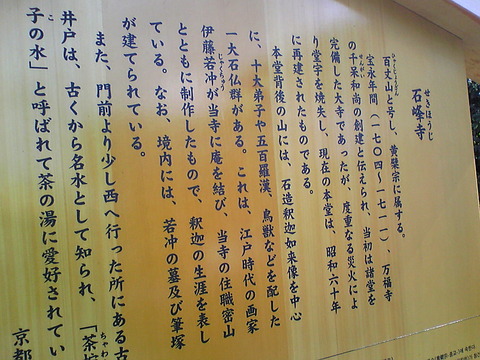 せきほうじ
石峰寺
ひゃくじょうざん
百丈山と号し、黄檗宗に属する。
宝永年間（一七〇四～一七一一）、万福寺
せんがい
の千呆和尚の創建と伝えられ、当初は諸堂を
完備した大寺であったが、度重なる災火によ
り堂宇を焼失し、現在の本堂は、昭和六十年
に再建されたものである。
本堂背後の山には、石造釈迦如来像を中心
に、十大弟子や五百羅漢、鳥獣などを配した
一大石仏群がある。これは、江戸時代の画家
じゃくちゅう
伊藤若冲が当寺に庵を結び、当寺の住職密山
とともに制作したもので、釈迦の生涯を表し
ている。なお、境内には、若冲の墓及び筆塚
が建てられている。
また、門前より少し西へ行った所にある古
ちゃわん
井戸は、古くから名水として知られ、「茶碗
こ
子の水」と呼ばれて茶の湯に愛好されてい
京都